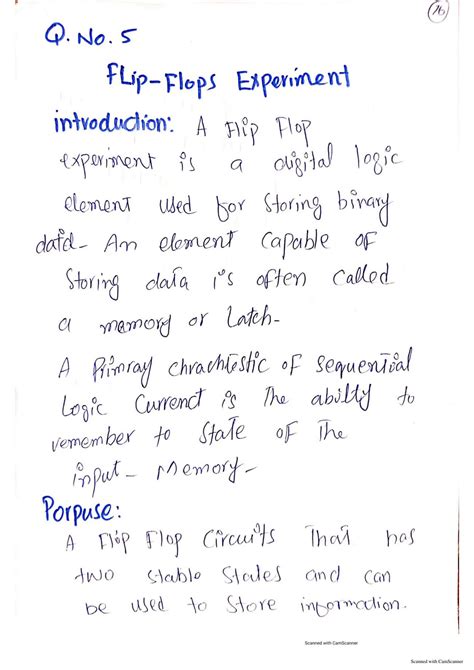 16
Q. No. 5
FLip-Flops Experiment
introduction: A Flip Flop
experiment is a digital logic
element used for Storing binary
datd- An element Capable of
Storing data i's often Called
a memory or Latch-
A Primray chrachtestic of Sequential
Logic Currenct is The abilty to
vemember to State of The
input- Memory-
Porpuse:
A Flip Flop Circuits That has
two stable States and can
be used to Store information.
Scanned with CamScanner
Scanned with CamScanner